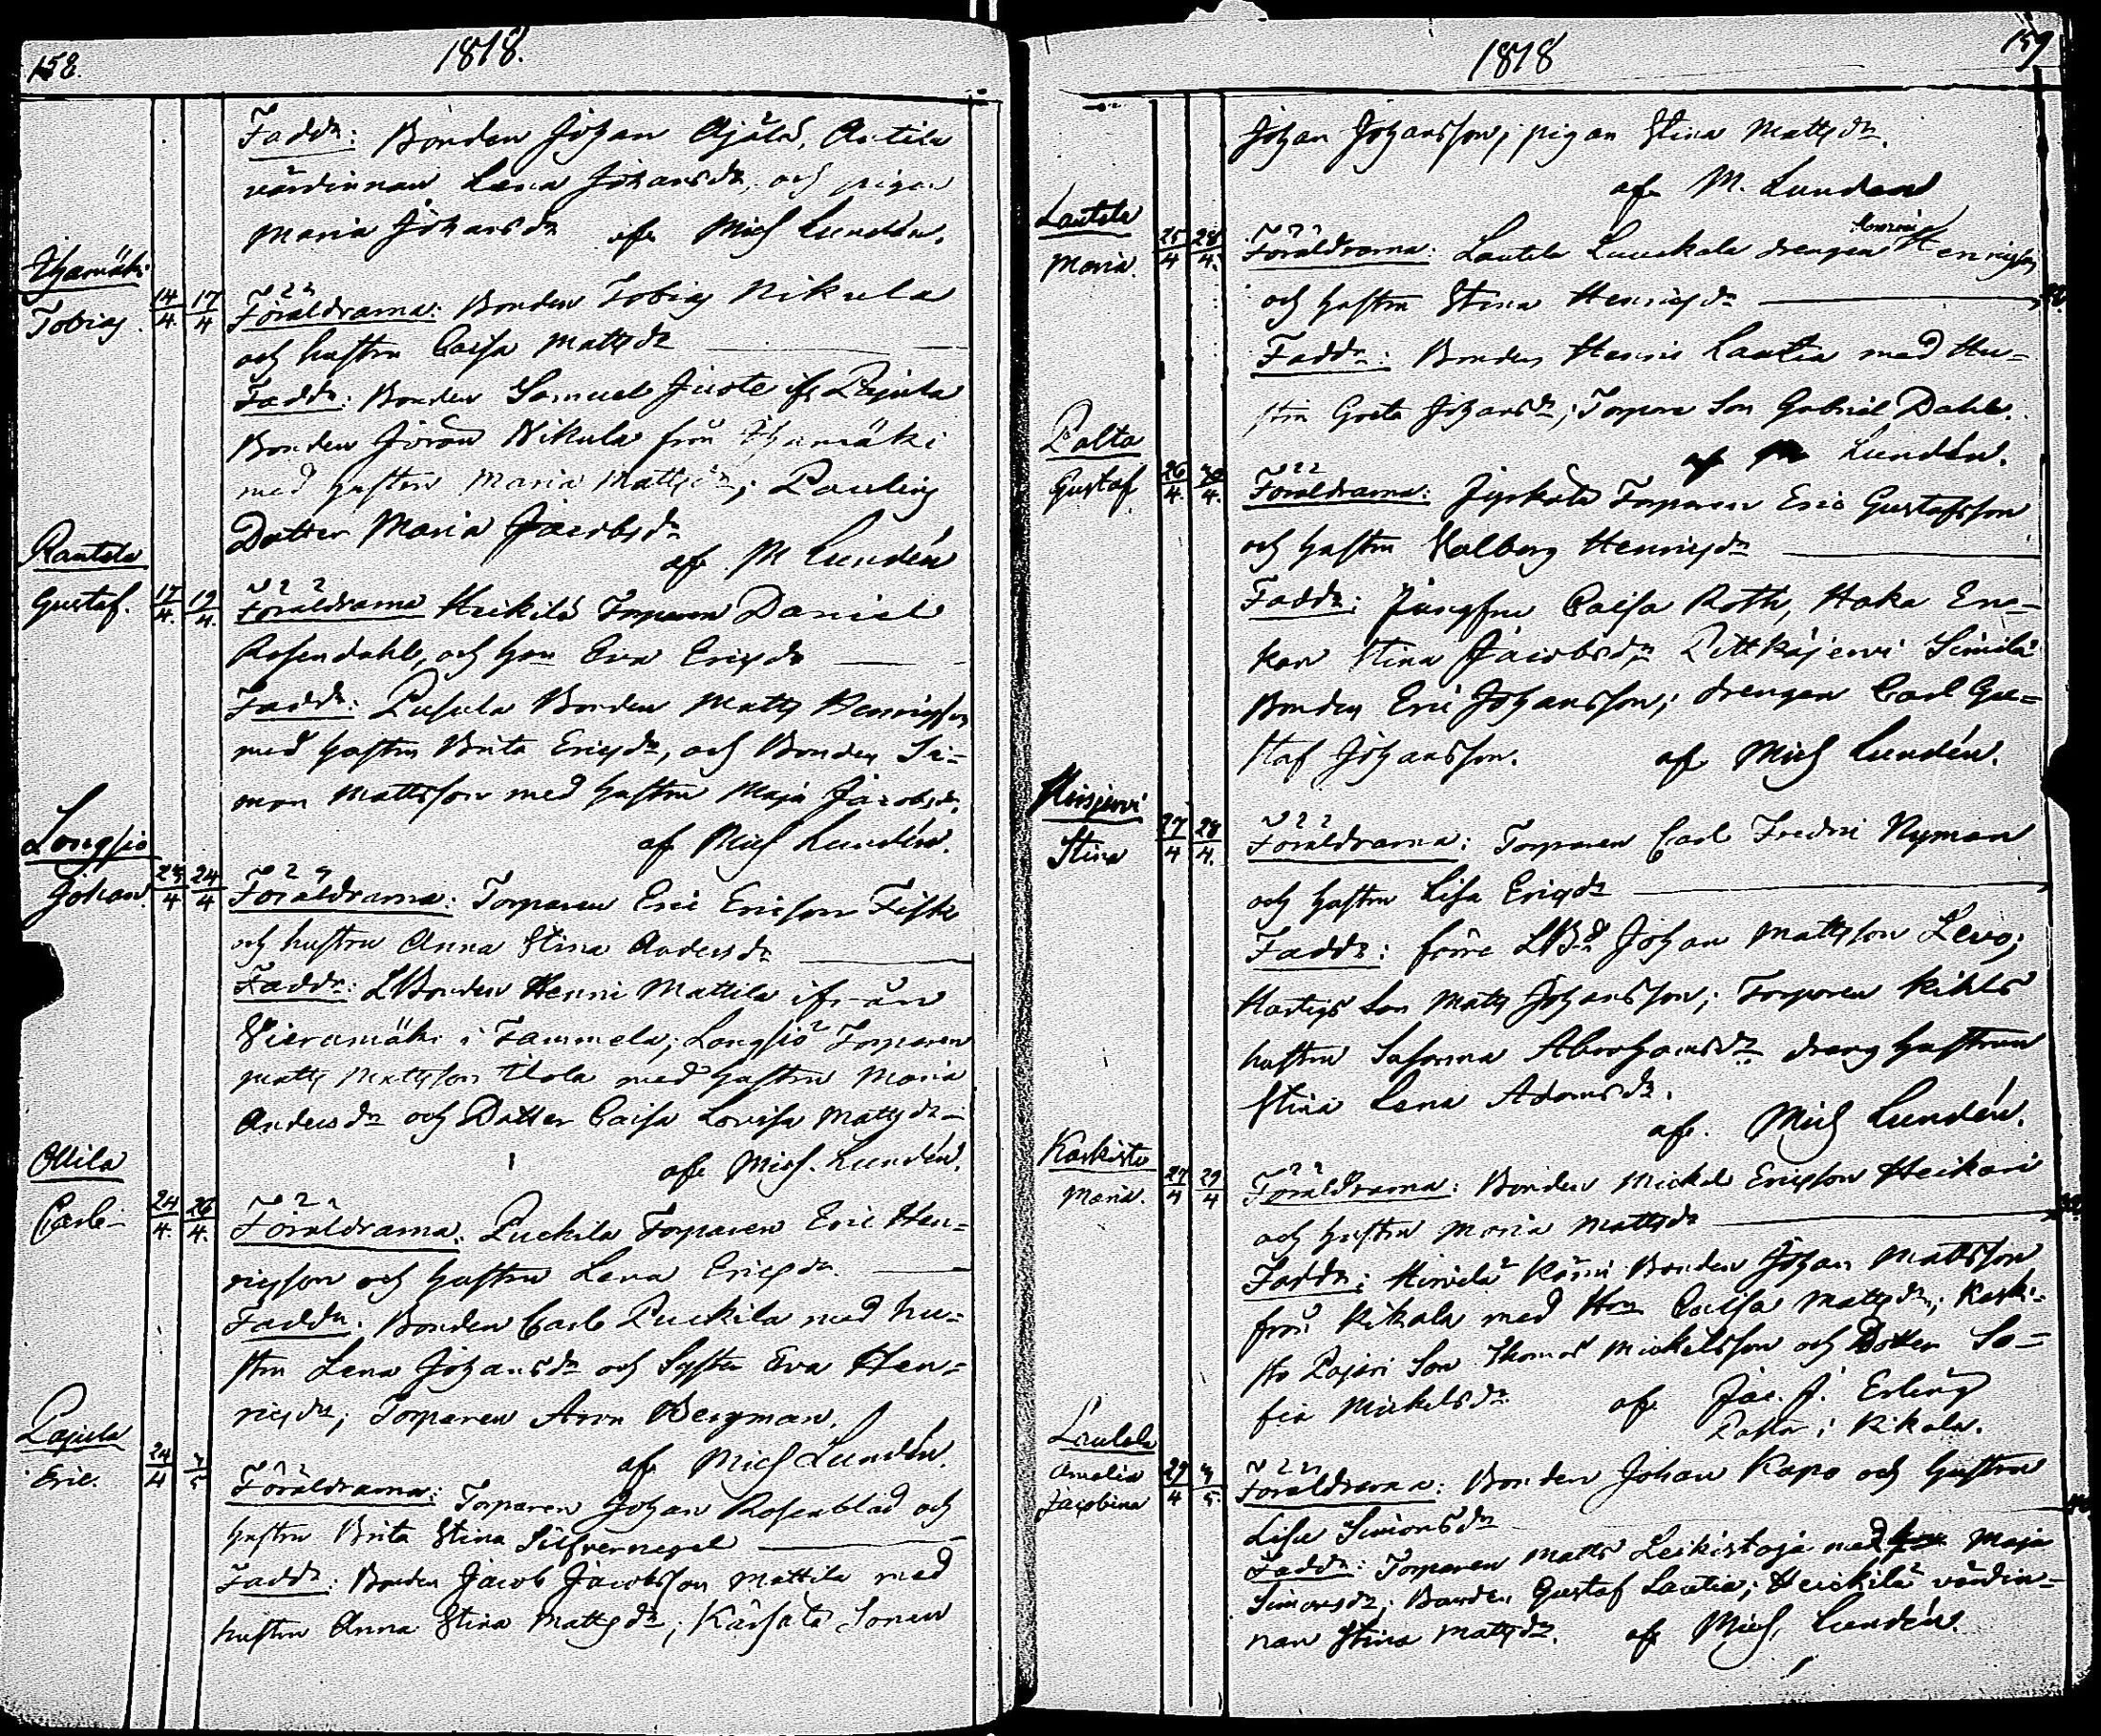 158.
1818.
Fadd:r: Bonden Johan Ajälä, Antila
värdinnan Lena Johansd:r, och pigan
Maria Johansd:r af Mich Lundén.
Tobias. 14/4. 17/4 Föräldrarna: Bonden Tobias Nikula
och hustru Caisa Mattsd:r
Fadd:r: Bonden Samuel Juste ifr Pajula
Bonden Jöran Nikula från
med hustru Maria Mattsd:r;
Dotter Maria Jacobsd:r
af M Lundén
Rautela
Gustaf. 17/4. 19/4. Föräldrarna Heikilä Torparen Daniel
Rosendahl, och hon Eva Ericsd:r
Fadd:r: Pusula Bonden Matts Henricsson
med hustru Brita Ericsd:r, och Bonden Si=
mon Mattsson med hustru Maja Jacobsd:r.
af Mich Lundén.
Longsjo
Johan. 23/4 24/4 Föräldrarna: Torparen Eric Ericson Fisk
och hustru Anna Stina Andersd:r
Fadd:r: LBonden Henric Mattila ifrån
Vieramäki i Tammela; Longsjö Torparen
Matts Mattsson Uola med hustru Maria
Andersd:r och Dotter Caisa Lovisa Mattsd:r
af Mich. Lundén.
Ollila
Carl 24/4. 26/4. Föräldrarna: Puckila Torparen Eric Hen=
ricsson och hustru Lena Ericsd:r.
Fadd:r: Bonden Carl Puckila med hu=
stru Lena Johansd:r och Syster Eva Hen=
ricsd:r; Torparen Aron Bergman.
af Mich Lundén.
Pajula
Eric. 24/4 Föräldrarna: Torparen Johan Rosenblad och
hustru Brita Stina Silfvernagel
Fadd:r: Bonden Jacob Jacobsson Mattila med
hustru Anna Stina Mattsd:r; Sonen
1818
159
Johan Johansson; pigan Stina Mattsd:r.
af M. Lunden
Lautela
Maria. 25/4 28/4. Föräldrarna: Lautela drengen Henricsson
och hustru Stina Henricsd:r
Fadd:r: Bonden Henric Lautia med Hu=
stru Greta Johansd:r; Torpare Son Gabriel Dahl.
af M Lundén.
Palta
Gustaf 26/4. 30/4. Föräldrarna: Jyrkälä Torparen Eric Gustafsson
och hustru Valborg Henricsd:r
Fadd:r: Jungfru Caisa Roth, Haka En=
kan Stina Jacobsd:r, Pittkäjervi Similä
Bonden Eric Johansson; drengen Carl Gu=
staf Johansson. af Mich Lundén.
Stina 27/4 28/4. Föräldrarna: Torparen Carl Fredric Nyman
och hustru Lisa Ericsd:r
Fadd:r: förre Johan Mattsson Levo;
Son Matts Johansson; Torparen Kihls
hustru Susanna Abrahamsd:r dräng hustrun
Stina Lena Adamsd:r.
af. Mich Lundén.
Karkisto
Maria. 27/4 29/4 Föräldrarna: Bonden Mickel Ericsson Heikari
och hustru Maria Mattsd:r
Fadd:r: Hirvelä Bonden Johan Mattsson
från Kikala med Hon Caisa Mattsd:r; Karki=
sto Pajari Son Thomas Mickelsson och Dotter So=
fia Mickelsd:r. af Jac. J. Erling
Pastor i Kikala.
Lautela
Amalia
Jacobina 29/4 Föräldrarna: Bonden Johan Kapo och hustru
Lisa Simonsd:r
Fadd:r: Torparen Matts Leikistoja med Maja
Simonsd:r; Bonden Gustaf Lautia; Heickilä värdin=
nan Stina Mattsd:r. af Mich. Lundén.